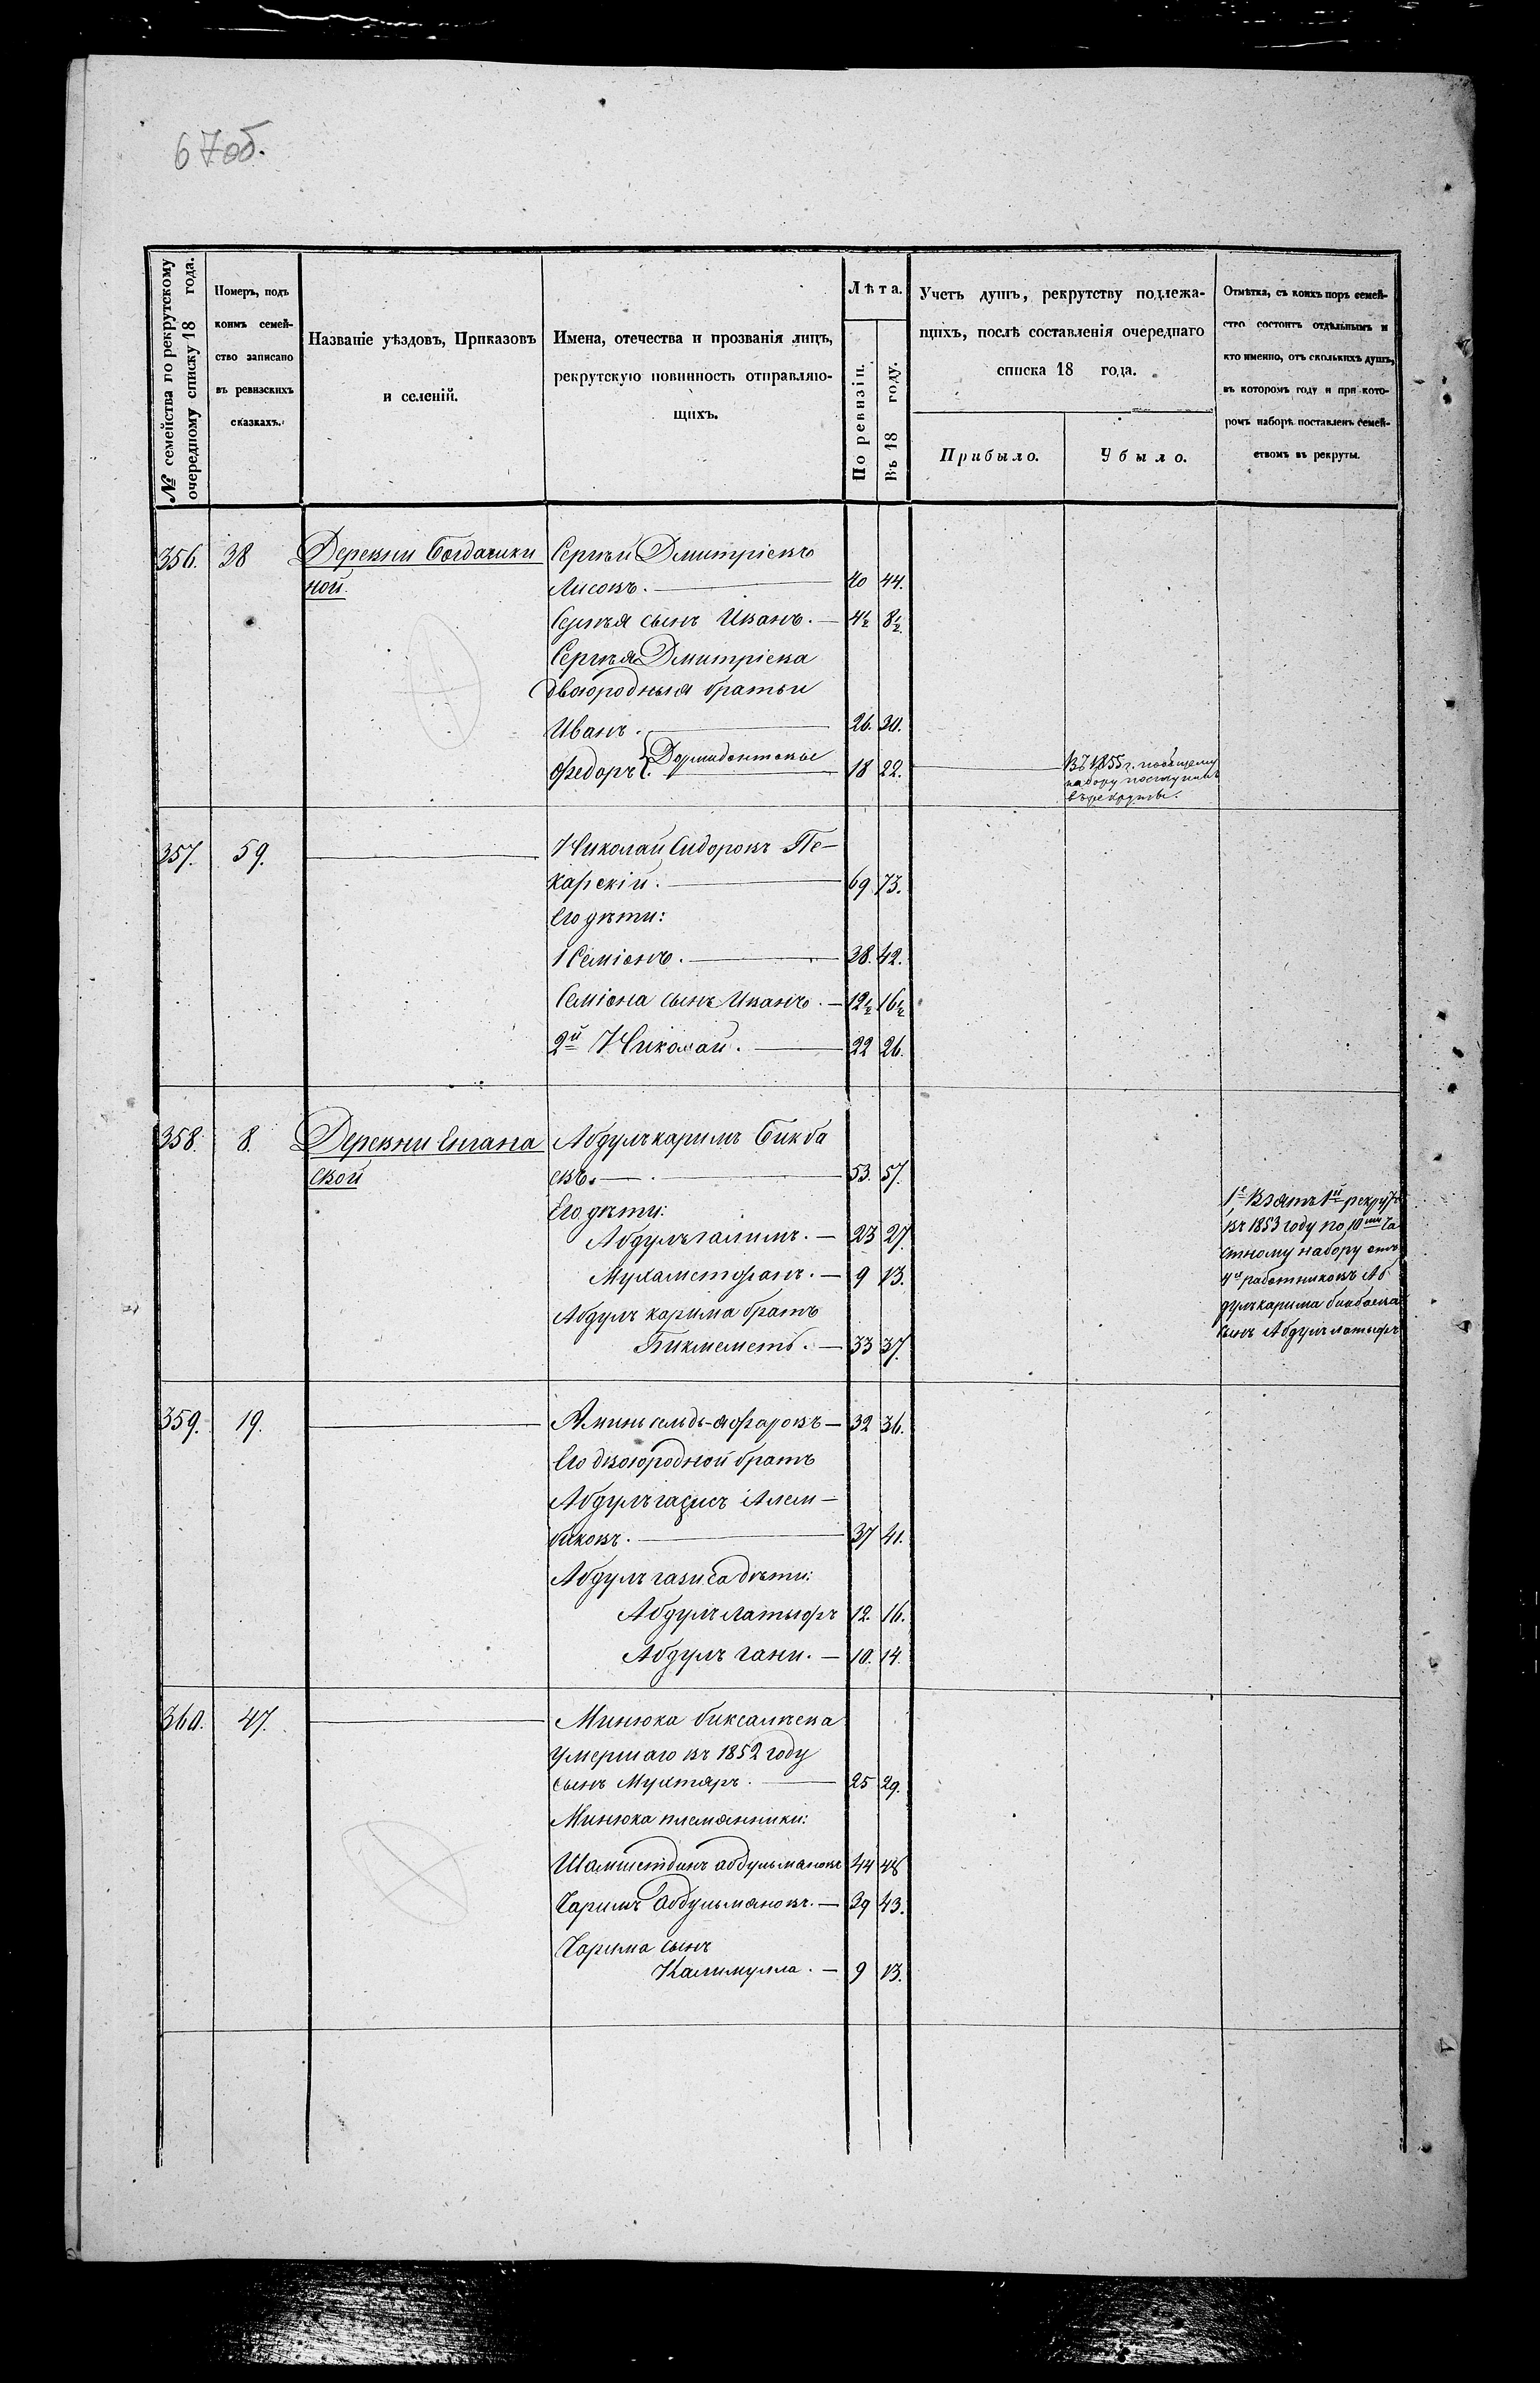 67об.
№ семейства по рекрутскому
очередному списку 18 года.
Номеръ, подъ
коимъ семей-
ство записано
въ ревизскихъ
сказкахъ.
Названіе уѣздовъ, Приказовъ
и селеній.
Имена, отечества и прозванія лицъ,
рекрутскую повинность отправляю-
щихъ.
Лѣта.
По ревизіи.
Въ 18 году.
Учетъ душъ, рекрутству подлежа-
щихъ, послѣ составленія очереднаго
списка 18 года.
Прибыло.
Убыло.
Отмѣтка, съ коихъ поръ семей-
ство состоитъ отдѣльнымъ и
кто именно, отъ сколькихъ душъ,
въ которомъ году и при кото-
ромъ наборѣ поставленъ семей-
ствомъ въ рекруты.
356. 38 Деревни Сергѣй Дмитріевъ
ной Лисовъ. 40 44.
Сергѣя сынъ Иванъ. 4½ 8½
Сергѣя Дмитріева
двоюродныя братьи
Иванъ. 26. 30.
Федоръ. Дормидонтовы 18 22. Въ 1855 г. по общему
набору поступилъ
въ рекруты.
357. 59. Николай Сидоровъ Пе-
карскій. 69 73.
Его дѣти:
1 Семіонъ. 38. 42.
Семіона сынъ Иванъ. 12½ 16½
2й Николай. 22 26.
358. 8. Деревни Енгана Абдулъкаримъ Бикба
ской евъ. 53. 57.
Его дѣти:
Абдулъгалимъ. 23 27.
Мухаметфанъ. 9 13.
Абдулъ карима братъ
Бикмеметь. 33 37.
1е Взятъ 1й рекрутъ
въ 1853 году по 10му ча
стному набору отъ
4х работниковъ Аб
дулъкарима бикбаева
сынъ Абдулълатыфъ
359. 19. 32 36.
Его двоюродной братъ
Абдулъгазисъ Алем-
биковъ. 37 41.
Абдулъ газиса дѣти:
Абдулъ латыфъ 12. 16.
Абдулъ гани. 10. 14.
360. 47. Минюка биксалѣева
умершаго въ 1852 году
сынъ Мухтаръ. 25 29.
Минюка племянники:
Шамшетдинъ абдульмановъ 44 48
Каримъ абдульмановъ. 39 43.
Карима сынъ
Калимулла. 9 13.